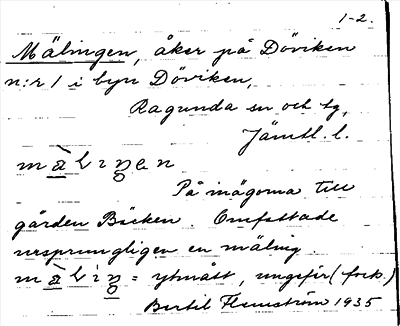 1-2.
Mälingen, åker på Döviken
n:r 1 i byn Döviken,
Ragunda sn och tg,
Jämtl. l.
På inägorna till
gården Bäcken. Omfattade
ursprungligen en mäling
= ytmått, ungefär (fork.)
Bertil Flemström 1935